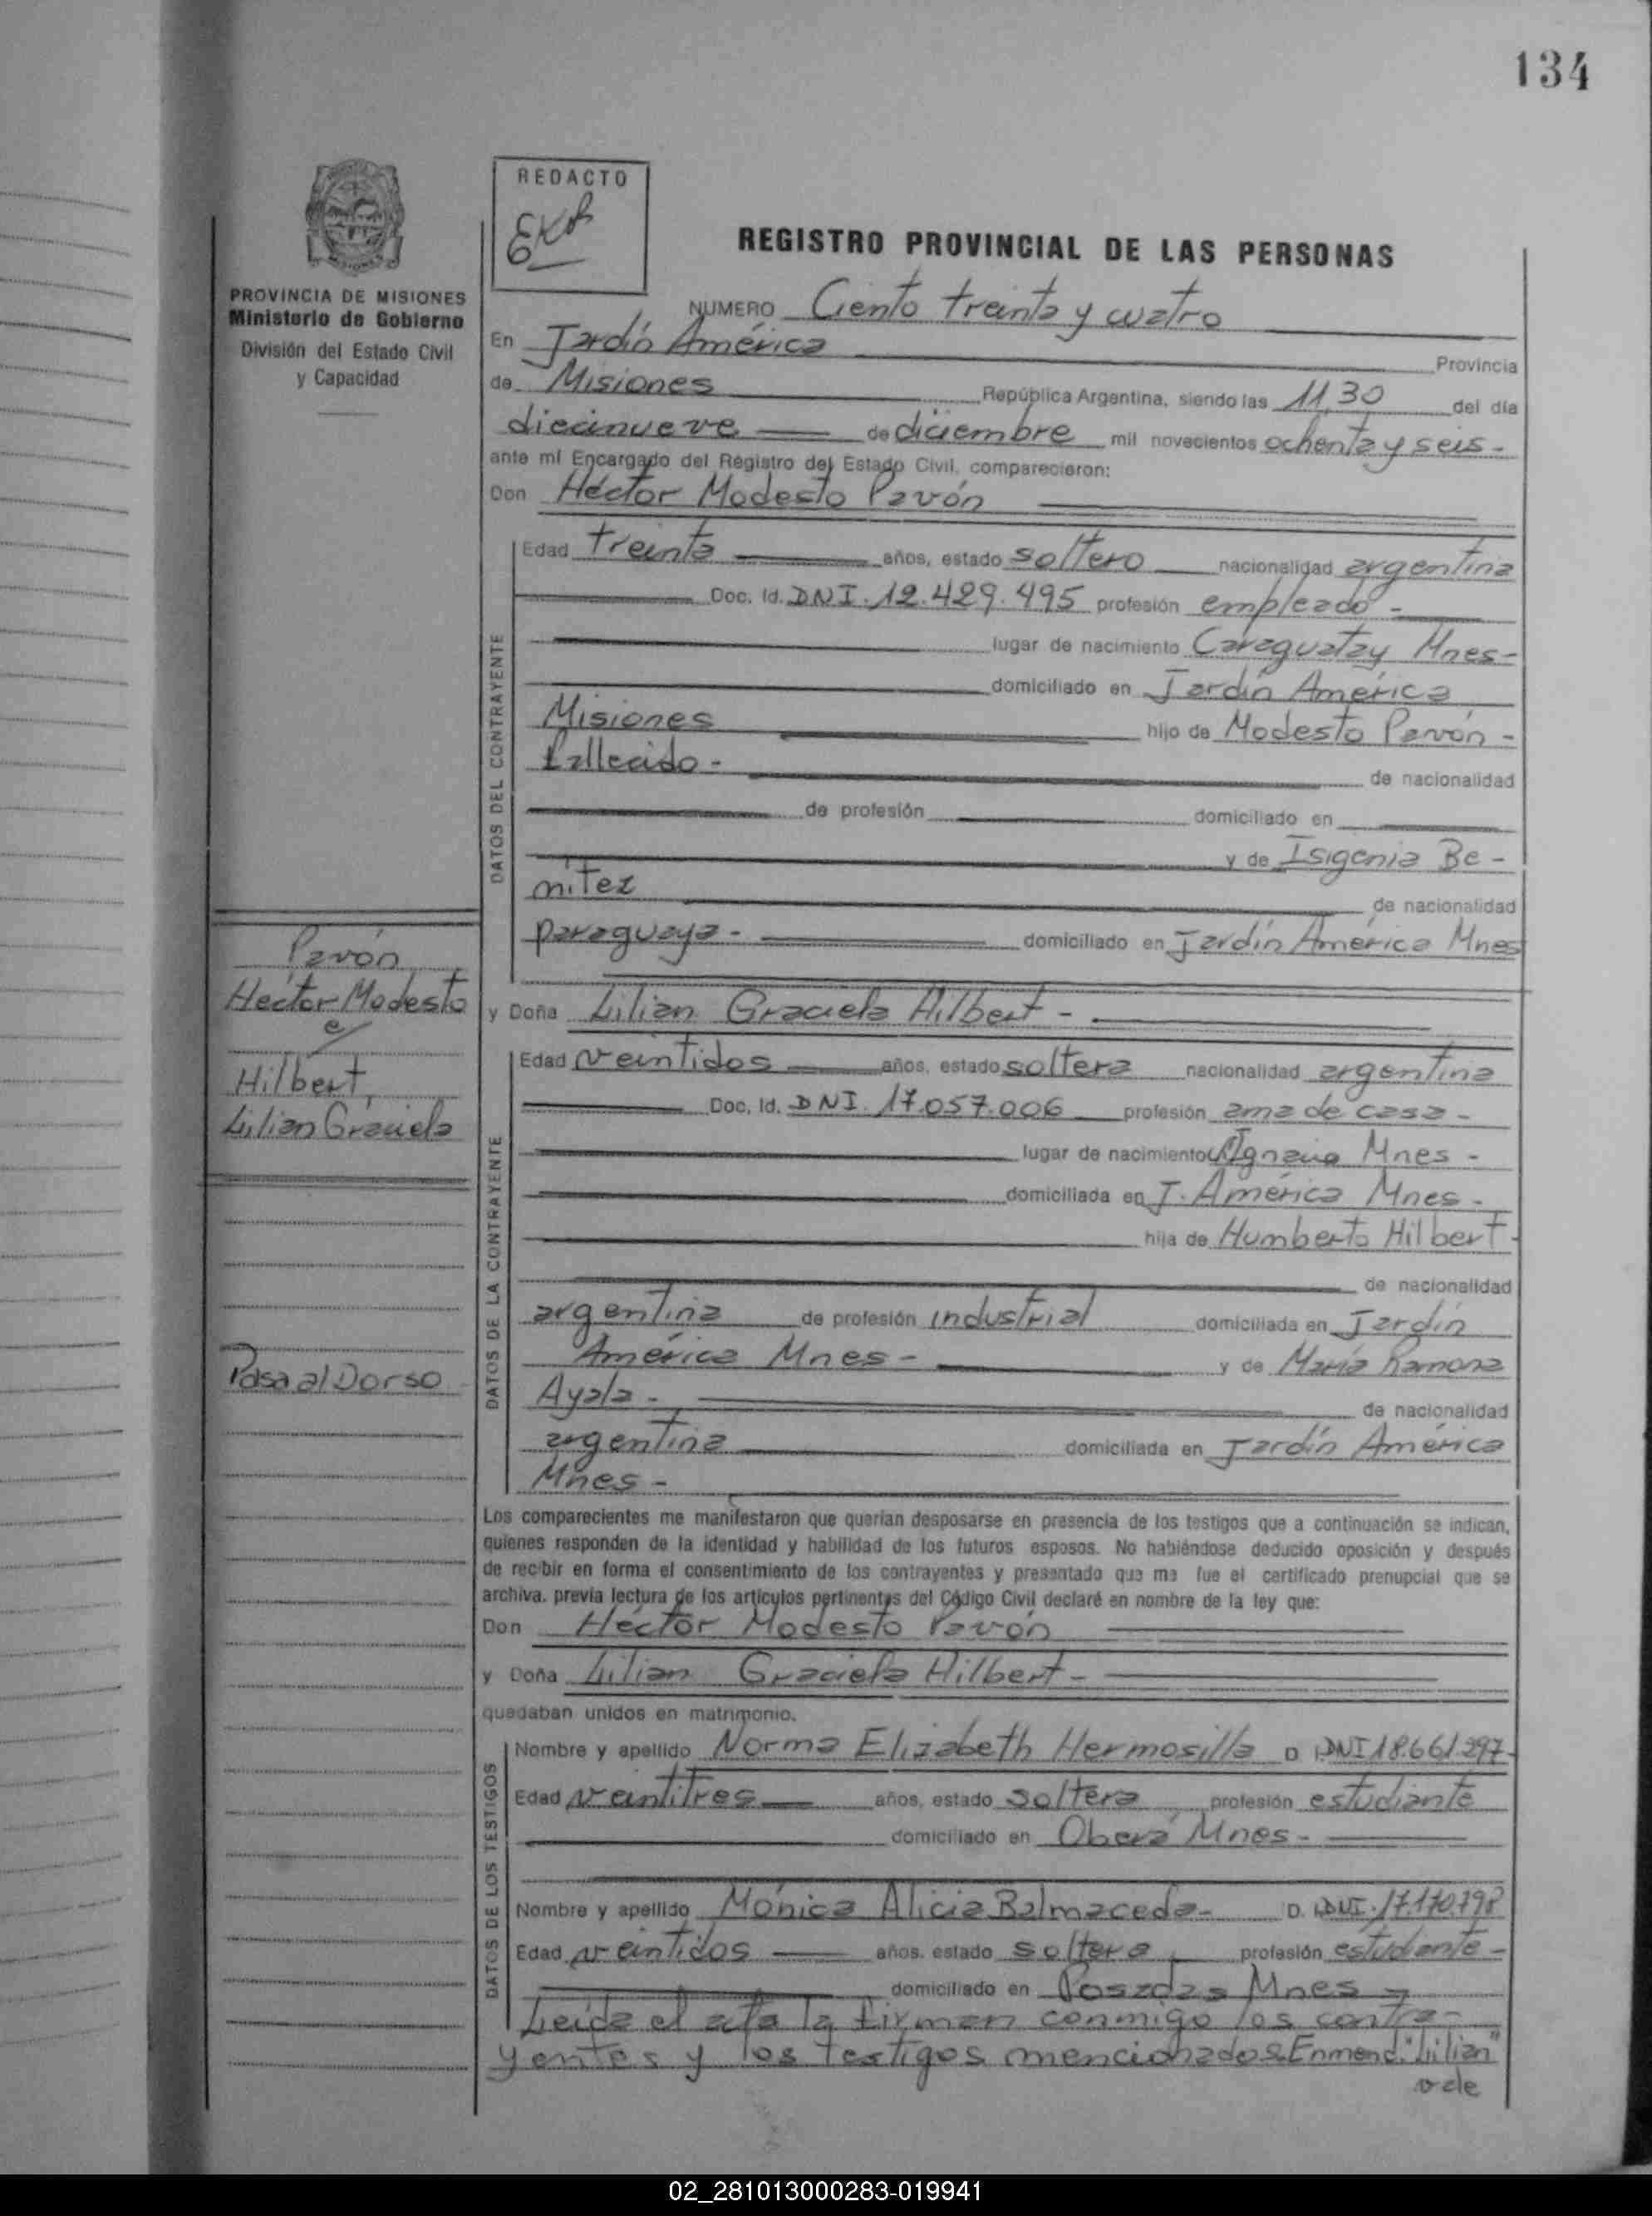 134
REDACTO
REGISTRO PROVINCIAL DE LAS PERSONAS
PROVINCIA DE MISIONES
Ministerio de Gobierno
División del Estado Civil
y Capacidad
NUMERO Ciento treinta y cuatro
En Jardín América Provincia
de Misiones República Argentina, siendo las 11,30 del día
diecinueve de diciembre mil novecientos ochenta y seis-
ante mí Encargado del Registro del Estado Civil, comparecieron:
Don Héctor Modesto Pavón
DATOS DEL CONTRAYENTE
Edad treinta años, estado soltero nacionalidad argentina
Doc. Id. DNI. 12.429.495 profesión empleado -
lugar de nacimiento Caraguatay Mnes-
domiciliado en Jardín América
Misiones hijo de Modesto Pavón -
fallecido - de nacionalidad
de profesión domiciliado en
y de Isigenia Be-
nitez de nacionalidad
paraguaya - domiciliado en Jardín América Mnes
Pavón
Héctor Modesto
c/
Hilbert,
Lilian Graciela
y Doña Lilian Graciela Hilbert -
DATOS DE LA CONTRAYENTE
Edad veintidos años, estado soltera nacionalidad argentina
Doc. Id. DNI. 17.057.006 profesión ama de casa -
lugar de nacimiento Ignacio Mnes -
domiciliada en J. América Mnes -
hija de Humberto Hilbert -
de nacionalidad
argentina de profesión industrial domiciliada en Jardín
América Mnes - y de María Ramona
Pasa al Dorso
Ayala - de nacionalidad
argentina domiciliada en Jardín América
Mnes -
Los comparecientes me manifestaron que querían desposarse en presencia de los testigos que a continuación se indican,
quienes responden de la identidad y habilidad de los futuros esposos. No habiéndose deducido oposición y después
de recibir en forma el consentimiento de los contrayentes y presentado que me fue el certificado prenupcial que se
archiva. previa lectura de los artículos pertinentes del Código Civil declaré en nombre de la ley que:
Don Héctor Modesto Pavón
y Doña Lilian Graciela Hilbert -
quedaban unidos en matrimonio.
DATOS DE LOS TESTIGOS
Nombre y apellido Norma Elizabeth Hermosilla D. DNI 18.661.297-
Edad veintitres años, estado soltera profesión estudiante
domiciliado en Oberá Mnes -
Nombre y apellido Mónica Alicia Balmaceda - D. I. DNI. 17.170.798
Edad veintidos años. estado soltera profesión estudiante -
domiciliado en Posadas Mnes -
Leída el acta la firman conmigo los contra-
yentes y los testigos mencionados. Enmend. "Lilian"
vale
02_281013000283-019941